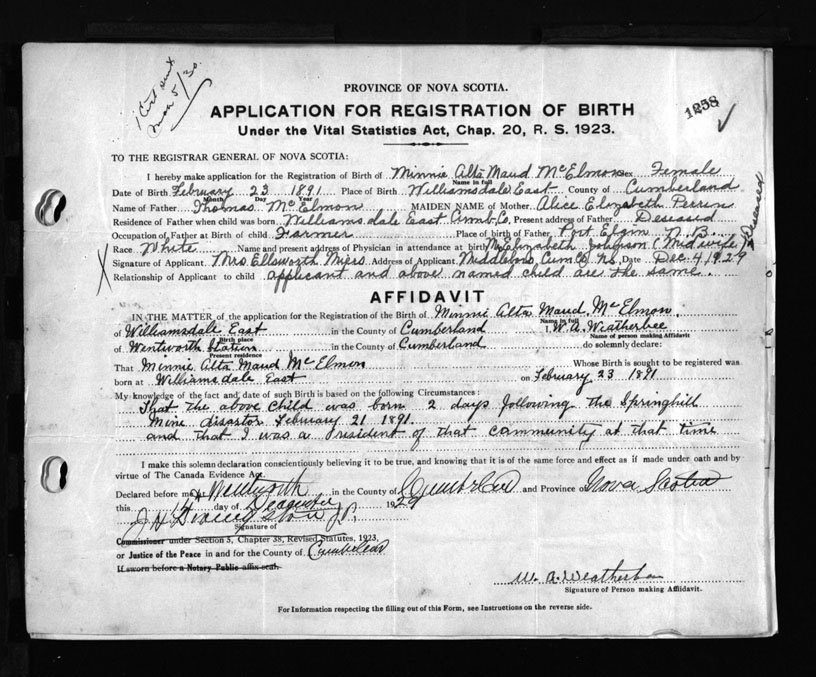 1 Cert sent
Mar 5/30.
1258
PROVINCE OF NOVA SCOTIA.
APPLICATION FOR REGISTRATION OF BIRTH
Under the Vital Statistics Act, Chap. 20, R. S. 1923.
TO THE REGISTRAR GENERAL OF NOVA SCOTIA:
I hereby make application for the Registration of Birth of Minnie Alta Maud McElmon Sex Female
Name in full
Date of Birth February 23 1891 Place of Birth Williamsdale East County of Cumberland
Month Day Year
Name of Father Thomas McElmon MAIDEN NAME of Mother Alice Elizabeth Perrin
Residence of Father when child was born Williamsdale East Cumb. Co, Present address of Father Deseased
Occupation of Father at Birth of Child Farmer Place of birth of Father Port Elgin N.B.
Race White Name and present address of Physician in attendance at birth Elizabeth Johnson (Midwife) Deseased
Signature of Applicant Mrs Ellsworth Address of Applicant Middleboro, Cum Co, NS, Date Dec. 4, 1929
Relationship of Applicant to child applicant and above named child are the same.
AFFIDAVIT
IN THE MATTER of the application for the Registration of Birth of Minnie Alta Maud McElmon
Name in full
of Williamsdale East in the County of Cumberland I, W. A. Weatherbee
Birth place Name of person making Affidavit
of Wentworth Station in the County of Cumberland do solemnly declare:
Present residence
That Minnie Alta Maud McElmon Whose Birth is sought to be registered was
born at Williamsdale East on February 23 1891
My knowledge of the fact and date of such Birth is based on the following Circumstances:
That the above child was born 2 days following the Springhill
Mine disastor February 21 1891.
and that I was a resident of that community at that time
I make this solemn declaration conscientiously believing it to be true, and knowing that it is of the same force and effect as if made under oath and by
virtue of The Canada Evidence Act.
Declared before me at Wentworth in the County of Cumberland and Province of Nova Scotia
this day of December 1929
J.P.
Signature of
Commissioner under Section 5, Chapter 38, Revised Statutes, 1923,
or Justice of the Peace in and for the County of Cumberland
If sworn before a Notary Public affix seal.
W. A. Weatherbee
Signature of Person making Affidavit.
For Information respecting the filling out of this Form, see Instructions on the reverse side.